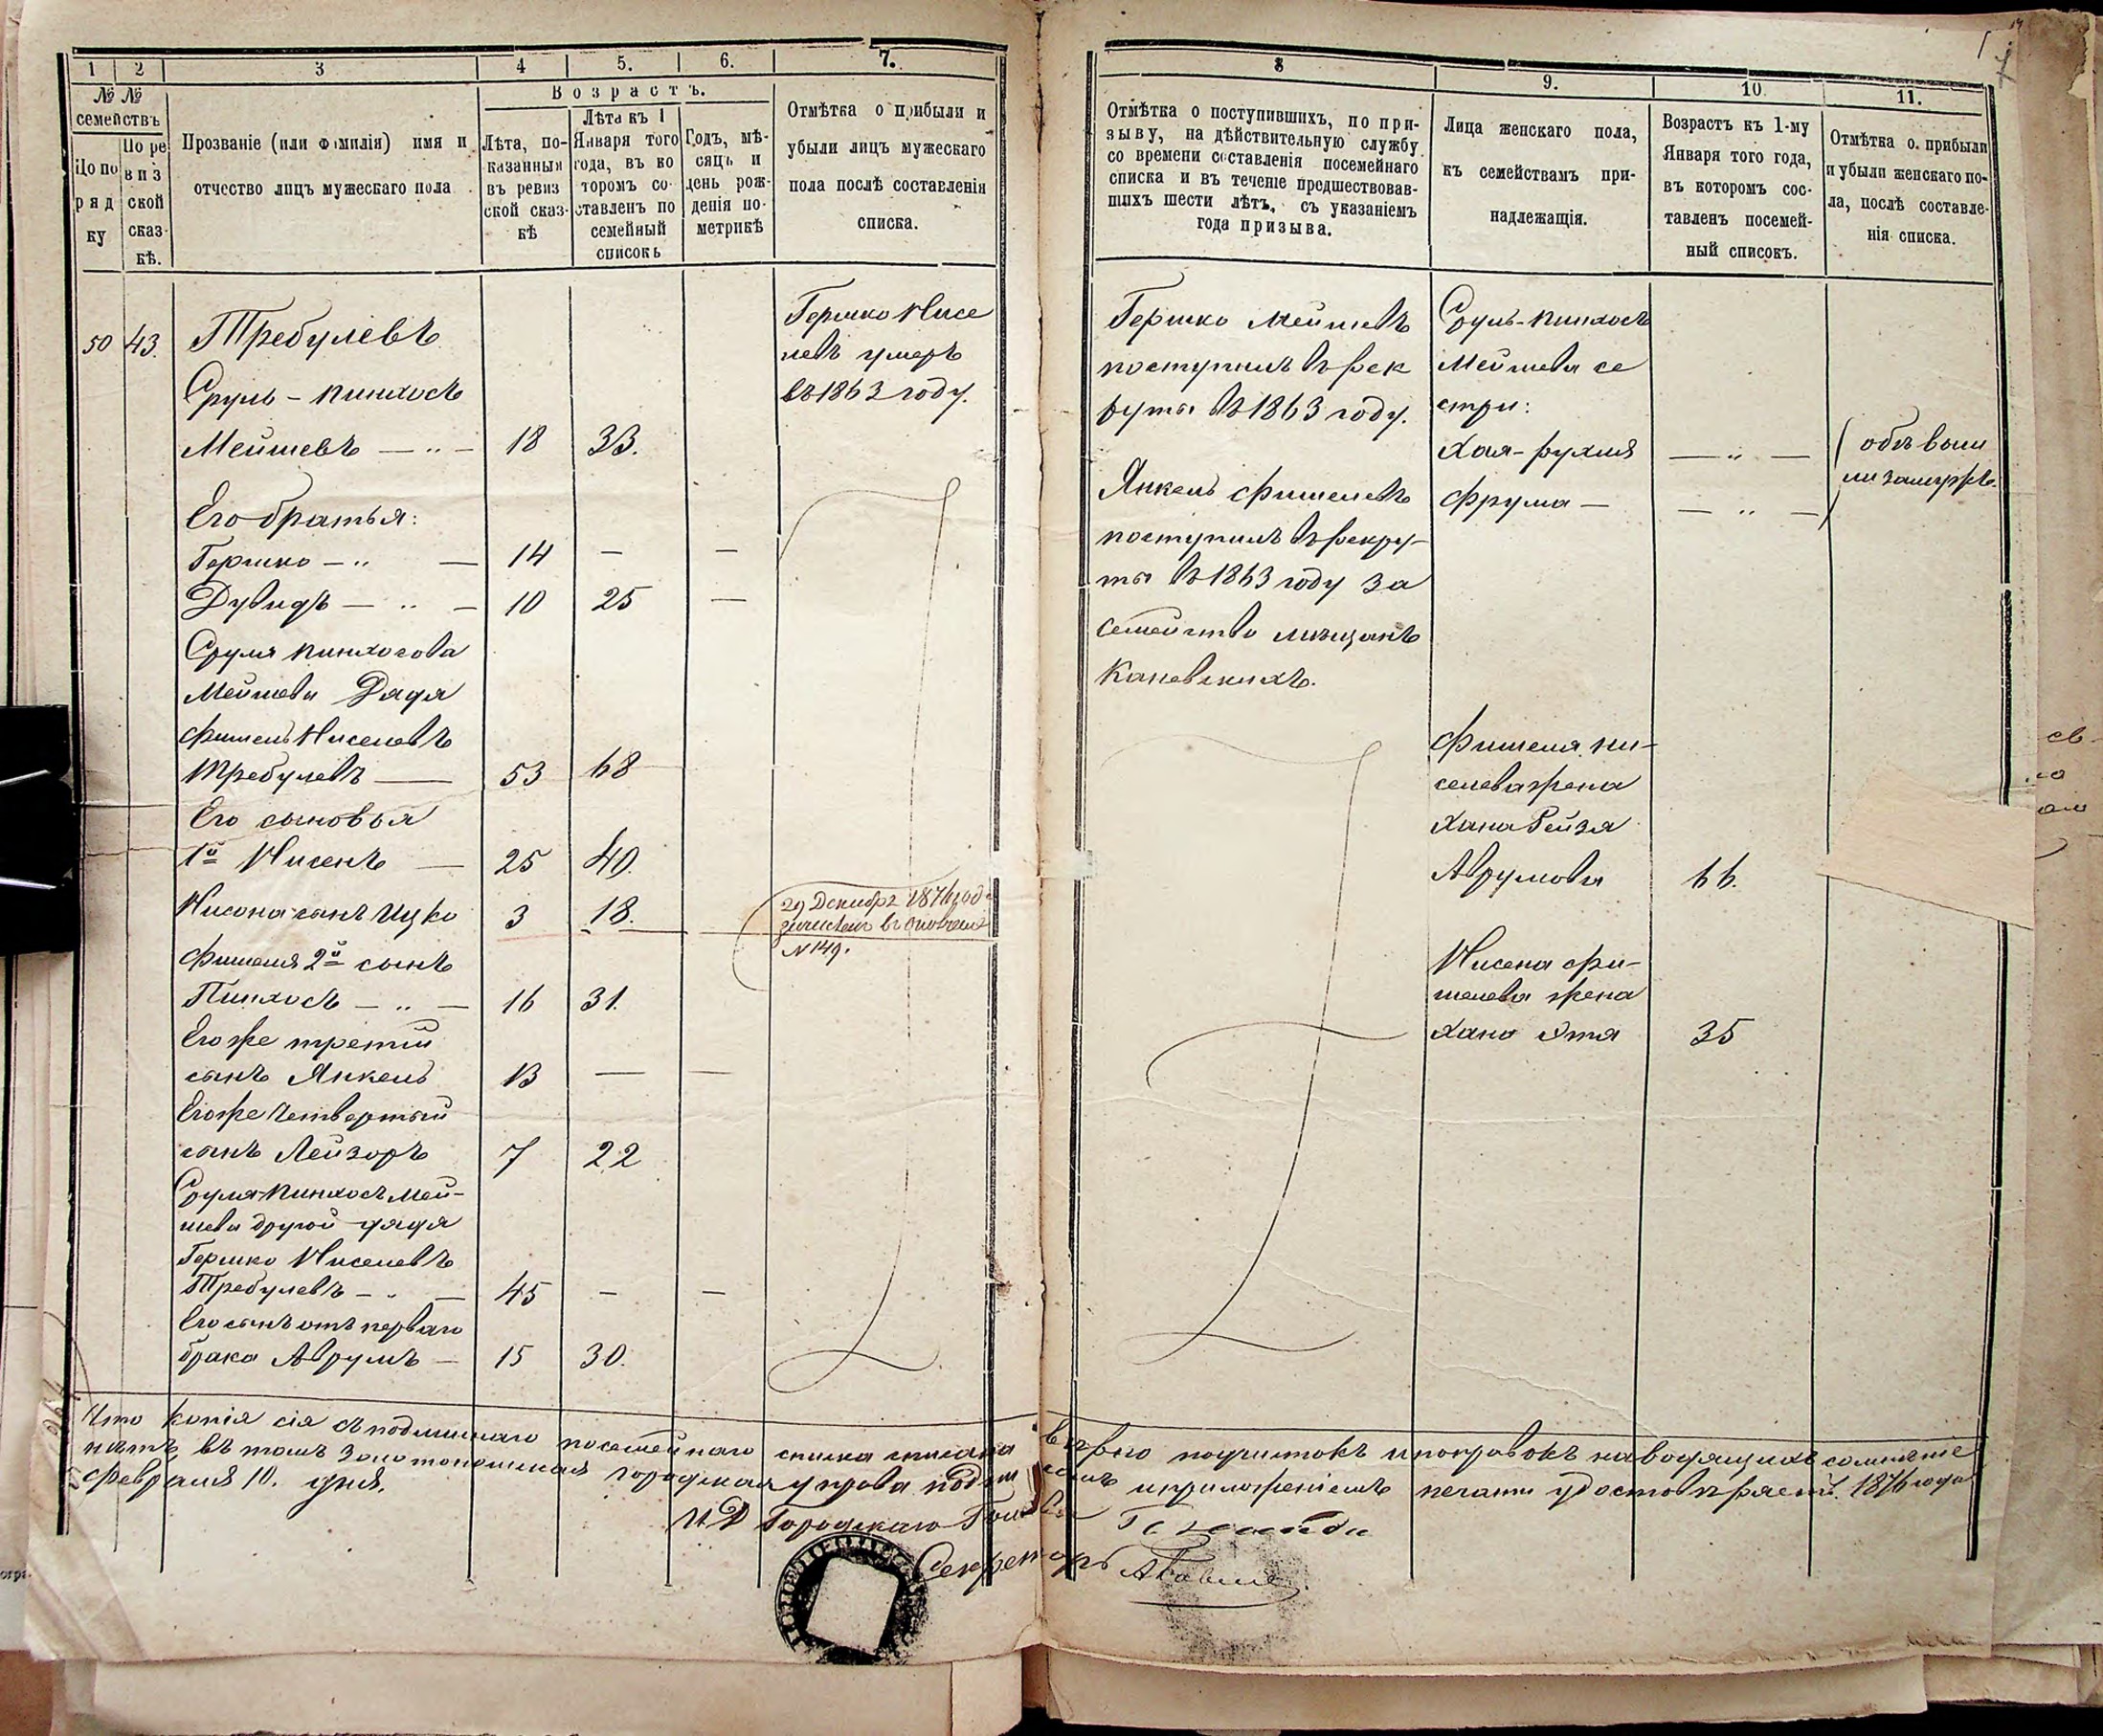 1 2 3 4 5. 6. 7.
№ №
семействъ
По по
ряд
ку
По ре
виз
ской
сказ-
кѣ.
Прозваніе (или фамилія) имя и
отчество лицъ мужескаго пола
Возрастъ.
Лѣта, по-
казанныя
въ ревиз
ской сказ-
кѣ
Лѣта къ 1
Января того
года, въ ко
торомъ со-
ставленъ по
семейный
списокъ
Годъ, мѣ-
сяцъ и
день рож-
денія по-
метрикѣ
Отмѣтка о прибыли и
убыли лицъ мужескаго
пола послѣ составленія
списка.
50 43. Требулевъ
Сруль-Пинхосъ
Мейшевъ — „ — 18 33.
Его братья:
Гершко — „ — 14 — —
Дувидъ — „ — 10 25 —
Сруля Пинхосова
Мейшева Дядя
Фишель Нисеневъ
Требулевъ — 53 68
Его сыновья
1й Нисенъ — 25 40.
Нисона сынъ Ицко 3 18.
Фишеля 2й сынъ
Пинхосъ — „ — 16 31.
Его же третій
сынъ Янкель 13 — —
Его же Четвертый
сынъ Лейзоръ 7 22
Сруля-Пинхосъ Мей-
шева другой дядя
Гершко Нисеневъ
Требулевъ — „ — 45 — —
Его сынъ отъ перваго
брака Аврумъ — 15 30.
Гершко Нисе
невъ умеръ
въ 1863 году.
29 Декабря 1876 год
№ 149.
8 9. 10 11.
Отмѣтка о поступившихъ, по при-
зыву, на дѣйствительную службу
со времени составленія посемейнаго
списка и въ теченіе предшествовав-
шихъ шести лѣтъ, съ указаніемъ
года призыва.
Лица женскаго пола,
къ семействамъ при-
надлежащія.
Возрастъ къ 1-му
Января того года,
въ котором сос-
тавленъ посемей-
ный списокъ.
Отмѣтка о. прибыли
и убыли женскаго по-
ла, послѣ составле-
нія списка.
Гершко Мейшевъ
поступилъ въ рек
руты въ 1863 году.
Янкель Фишелевъ
поступилъ въ рекру-
ты въ 1863 году за
семейство мѣщанъ
Каневскихъ.
Сруль-Пинхосъ
Мейшева се
стры:
Хая-рухля — „ —
Фрума — — „ —
обѣ выш
ли замужъ.
Фишеля Ни-
селева жена
Хана Рейза
Аврумова 66.
Нисена Фи-
шелева жена
Хана Этя 35
Что копія сія съ подлиннаго посемейнаго списка списана вѣрно подчистокъ и поправокъ наводящихъ сомнѣніе
нѣтъ, въ томъ Золотоношская городская управа подписомъ и приложеніемъ печати удостовѣряетъ. 1876 года
февраля 10. дня.
И Д Городскаго Головы
Секретарь